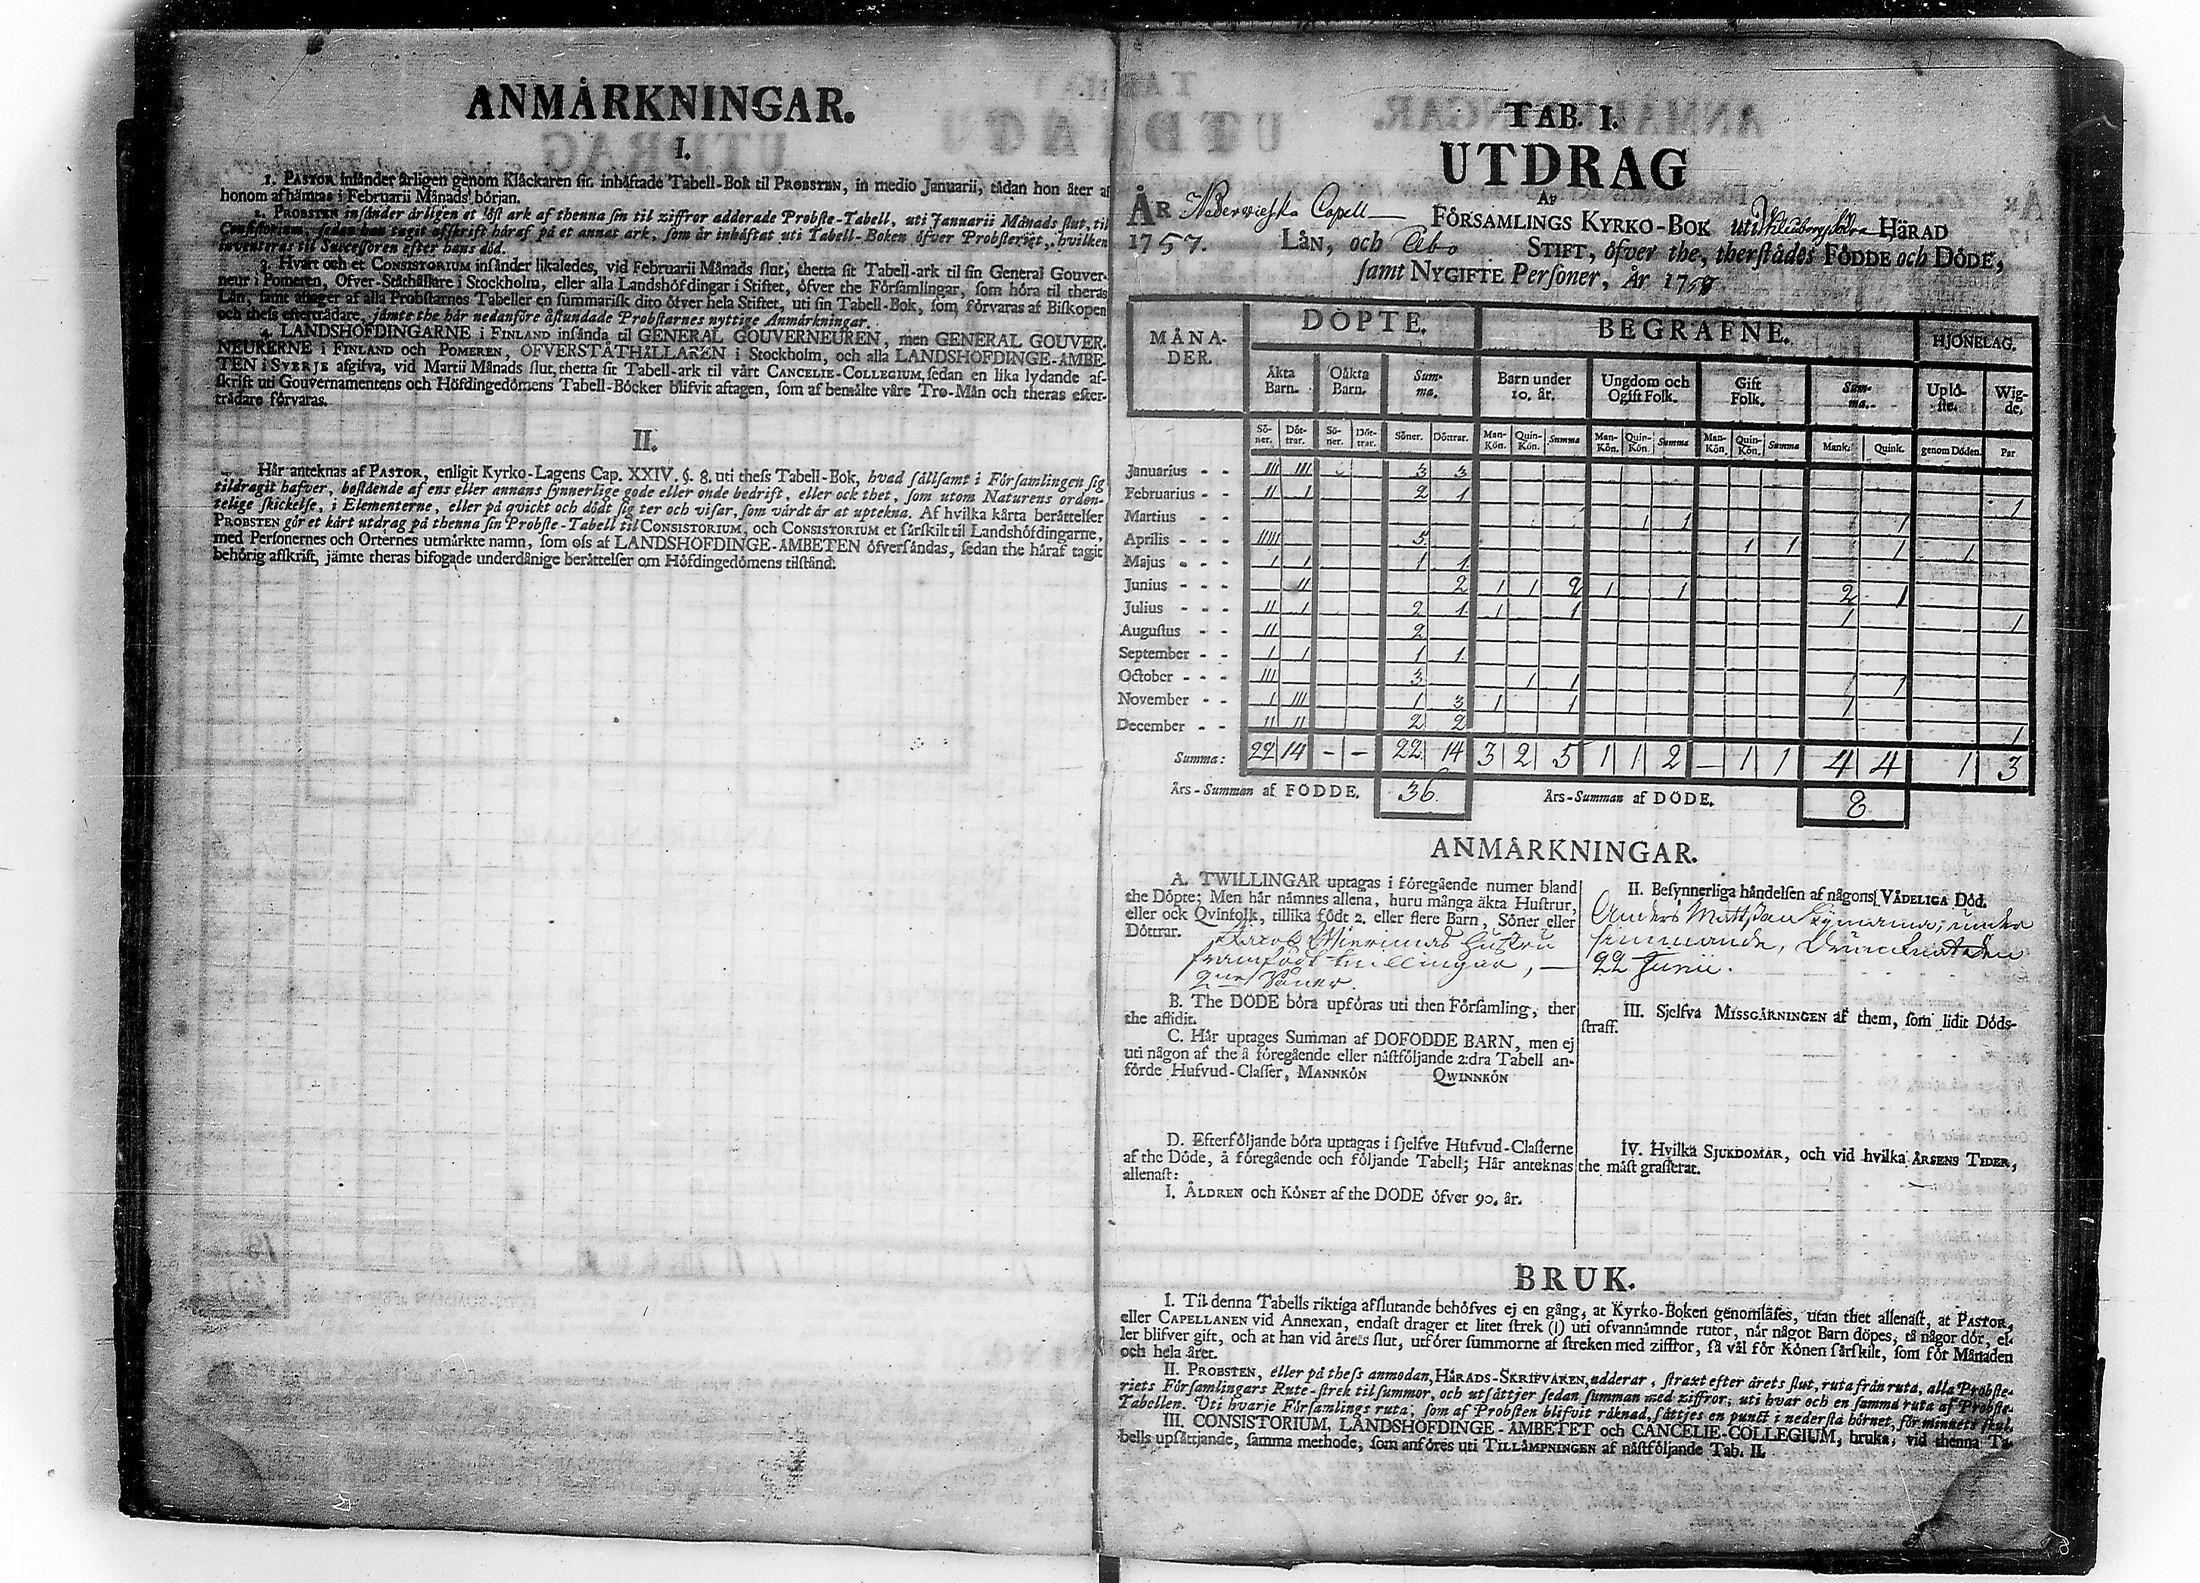 ANMÅRKNINGAR.
I.
1. PASTOR insånder årligen genom Klåckaren sin inhåftade Tabell-Bok til PROBSTEN, in medio Januarii, tådan hon åter af
honom afhämtas i Februarii Månads början.
2. PROBSTEN insånder årligen et löst ark af thenna sin til ziffror adderade Probste-Tabell, uti Januarii Månads slut, til
Consistorium, sedan han tagit afskrift håraf på et annat ark, som är inhåftat uti Tabell-Boken öfver Probsteriet, hvilken
inventeras til Successoren efter hans död.
3. Hvart och et CONSISTORIUM insånder likaledes, vid Februarii Månads slut, thetta sit Tabell-ark til sin General Gouver-
neur i Pomeren, Ofver-Ståthållare i Stockholm, eller alla Landshöfdingar i Stiftet, öfver the Församlingar, som höra til theras
Lån, samt aftager af alla Probstarnes Tabeller en summarisk dito öfver hela Stiftet, uti sin Tabell-Bok, som förvaras af Biskopen
och thess efterträdare, jämte the hår nedanföre åstundade Probstarnes nyttige Anmårkningar.
4. LANDSHÖFDINGARNE i FINLAND insånda til GENERAL GOUVERNEUREN, men GENERAL GOUVER-
NEURERNE i FINLAND och POMEREN, ÖFVERSTÅTHÅLLAREN i Stockholm, och alla LANDSHÖFDINGE-ÅMBE-
TEN i SVERJE afgifva, vid Martii Månads slut, thetta sit Tabell-ark til vårt CANCELIE-COLLEGIUM, sedan en lika lydande af-
skrift uti Gouvernamentens och Höfdingedömens Tabell-Böcker blifvit aftagen, som af bemålte våre Tro-Mån och theras efter-
trådare förvaras.
II.
Hår anteknas af PASTOR, enligit Kyrko-Lagens Cap. XXIV. §. 8. uti thess Tabell-Bok, hvad sållsamt i Församlingen sig
tildragit hafver, bestående af ens eller annans synnerlige gode eller onde bedrift, eller ock thet, som utom Naturens orden-
telige skickelse, i Elementerne, eller på qvickt och dödt sig ter och visar, som vårdt år at uptekna. Af hvilka kårta beråttelser
PROBSTEN gör et kårt utdrag på thenna sin Probste-Tabell til CONSISTORIUM, och CONSISTORIUM et sårskilt til Landshöfdingarne,
med Personernes och Orternes utmårkte namn, som oss af LANDSHÖFDINGE-ÅMBETEN öfversåndas, sedan the håraf tagit
behörig afskrift, jämte theras bifogade underdånige beråttelser om Höfdingedömens tilstånd.
TAB. I.
UTDRAG
AF
ÅR Capell FÖRSAMLINGS KYRKO-BOK uti HÄRAD
1757. LÅN, och Åbo STIFT, öfver the, therstådes FÖDDE och DÖDE,
samt NYGIFTE Personer, År 1757
MÅNA- DÖPTE. BEGRAFNE. HJONELAG.
DER. Åkta Oåkta Sum- Barn under Ungdom och Gift Sum- Uplö- Wig-
Barn. Barn. ma. 10. år. Ogift Folk. Folk. ma. ste. de.
Sö- Döt- Sö- Döt- Söner. Döttrar. Man- Quin- Summa Man- Quin- Summa Man- Quin- Summa Mank. Quink. genom Döden. Par
ner. trar. ner. trar. Kön. Kön. Kön. Kön. Kön. Kön.
Januarius - - III III 3 3
Februarius - - II I 2 1 1
Martius - - 1 1 1
Aprilis - - - IIIII 5 1 1 1 1
Majus - - - I I 1 1
Junius - - - II 2 1 1 2 1 1 2 1
Julius - - - II I 2 1 1 1 1 1
Augustus - - II 2
September - - I I 1 1
October - - - III 3 1 1 1
November - - I III 1 3 1 1 1
December - - II II 2 2 1
Summa: 22 14 - - 22 14 3 2 5 1 1 2 - 1 1 4 4 1 3
Års-Summan af FÖDDE. 36. Års-Summan af DÖDE. 8
ANMÅRKNINGAR.
A. TWILLINGAR uptagas i föregående numer bland
the Döpte; Men hår nåmnes allena, huru många åkta Hustrur,
eller ock Qvinfolk, tillika födt 2. eller flere Barn, Söner eller
Döttrar.
Jacob Hustru
framfödt twillingar, —
2ne Söner.
B. The DÖDE böra upföras uti then Församling, ther
the afsidit.
C. Hår uptages Summan af DÖFÖDDE BARN, men ej
uti någon af the å föregående eller nåstföljande 2:dra Tabell an-
förde Hufvud-Classer, MANNKÖN QWINNKÖN
D. Efterföljande böra uptagas i sjelfve Hufvud-Classerne
af the Döde, å föregående och följande Tabell; Hår anteknas
allenast:
I. ÅLDREN och KÖNET af the DÖDE öfver 90. år.
II. Besynnerliga håndelsen af någons VÅDELIGA Död.
Anders Mattsson under
simmande,
22 Junii.
III. Sjelfva MISSGÅRNINGEN af them, som lidit Döds-
straff.
IV. Hvilka SJUKDOMAR, och vid hvilka ÅRSENS TIDER,
the måst grasserat.
BRUK.
I. Til denna Tabells riktiga afslutande behöfves ej en gång, at Kyrko-Boken genomlåses, utan thet allenast, at PASTOR,
eller CAPELLANEN vid Annexan, endast drager et litet strek (I) uti ofvannämnde rutor, når något Barn döpes, tå någor dör, el-
ler blifver gift, och at han vid årets slut, utförer summorne af streken med ziffror, så vål för Könen sårskilt, som för Månaden
och hela året.
II. PROBSTEN, eller på thess anmodan, HÅRADS-SKRIFVAREN, adderar, straxt efter årets slut, ruta från ruta, alla Probste-
riets Församlingars Rute-strek til summor, och utsåttjer sedan summan med ziffror, uti hvar och en samma ruta af Probste-
Tabellen. Uti hvarje Församlings ruta, som af Probsten blifvit råknad, såttjes en punct i nedersta hörnet, för minnets skul.
III. CONSISTORIUM, LANDSHÖFDINGE-ÅMBETET och CANCELIE-COLLEGIUM, bruka, vid thenna Ta-
bells upsåttjande, samma methode, som anföres uti TILLÅMPNINGEN af nåstföljande Tab. II.